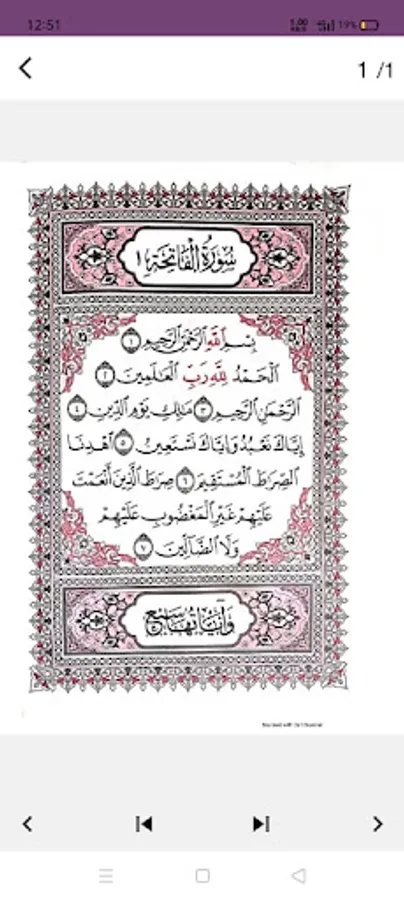 12:51
19%
1 /1
سُورَةُ الْفَاتِحَةِ ١
بِسْمِ اللَّهِ الرَّحْمَٰنِ الرَّحِيمِ ١
الْحَمْدُ لِلَّهِ رَبِّ الْعَالَمِينَ ٢
الرَّحْمَٰنِ الرَّحِيمِ ٣ مَالِكِ يَوْمِ الدِّينِ ٤
إِيَّاكَ نَعْبُدُ وَإِيَّاكَ نَسْتَعِينُ ٥ اهْدِنَا
الصِّرَاطَ الْمُسْتَقِيمَ ٦ صِرَاطَ الَّذِينَ أَنْعَمْتَ
عَلَيْهِمْ غَيْرِ الْمَغْضُوبِ عَلَيْهِمْ
وَلَا الضَّالِّينَ ٧
وَآيَاتُهَا سَبْعٌ